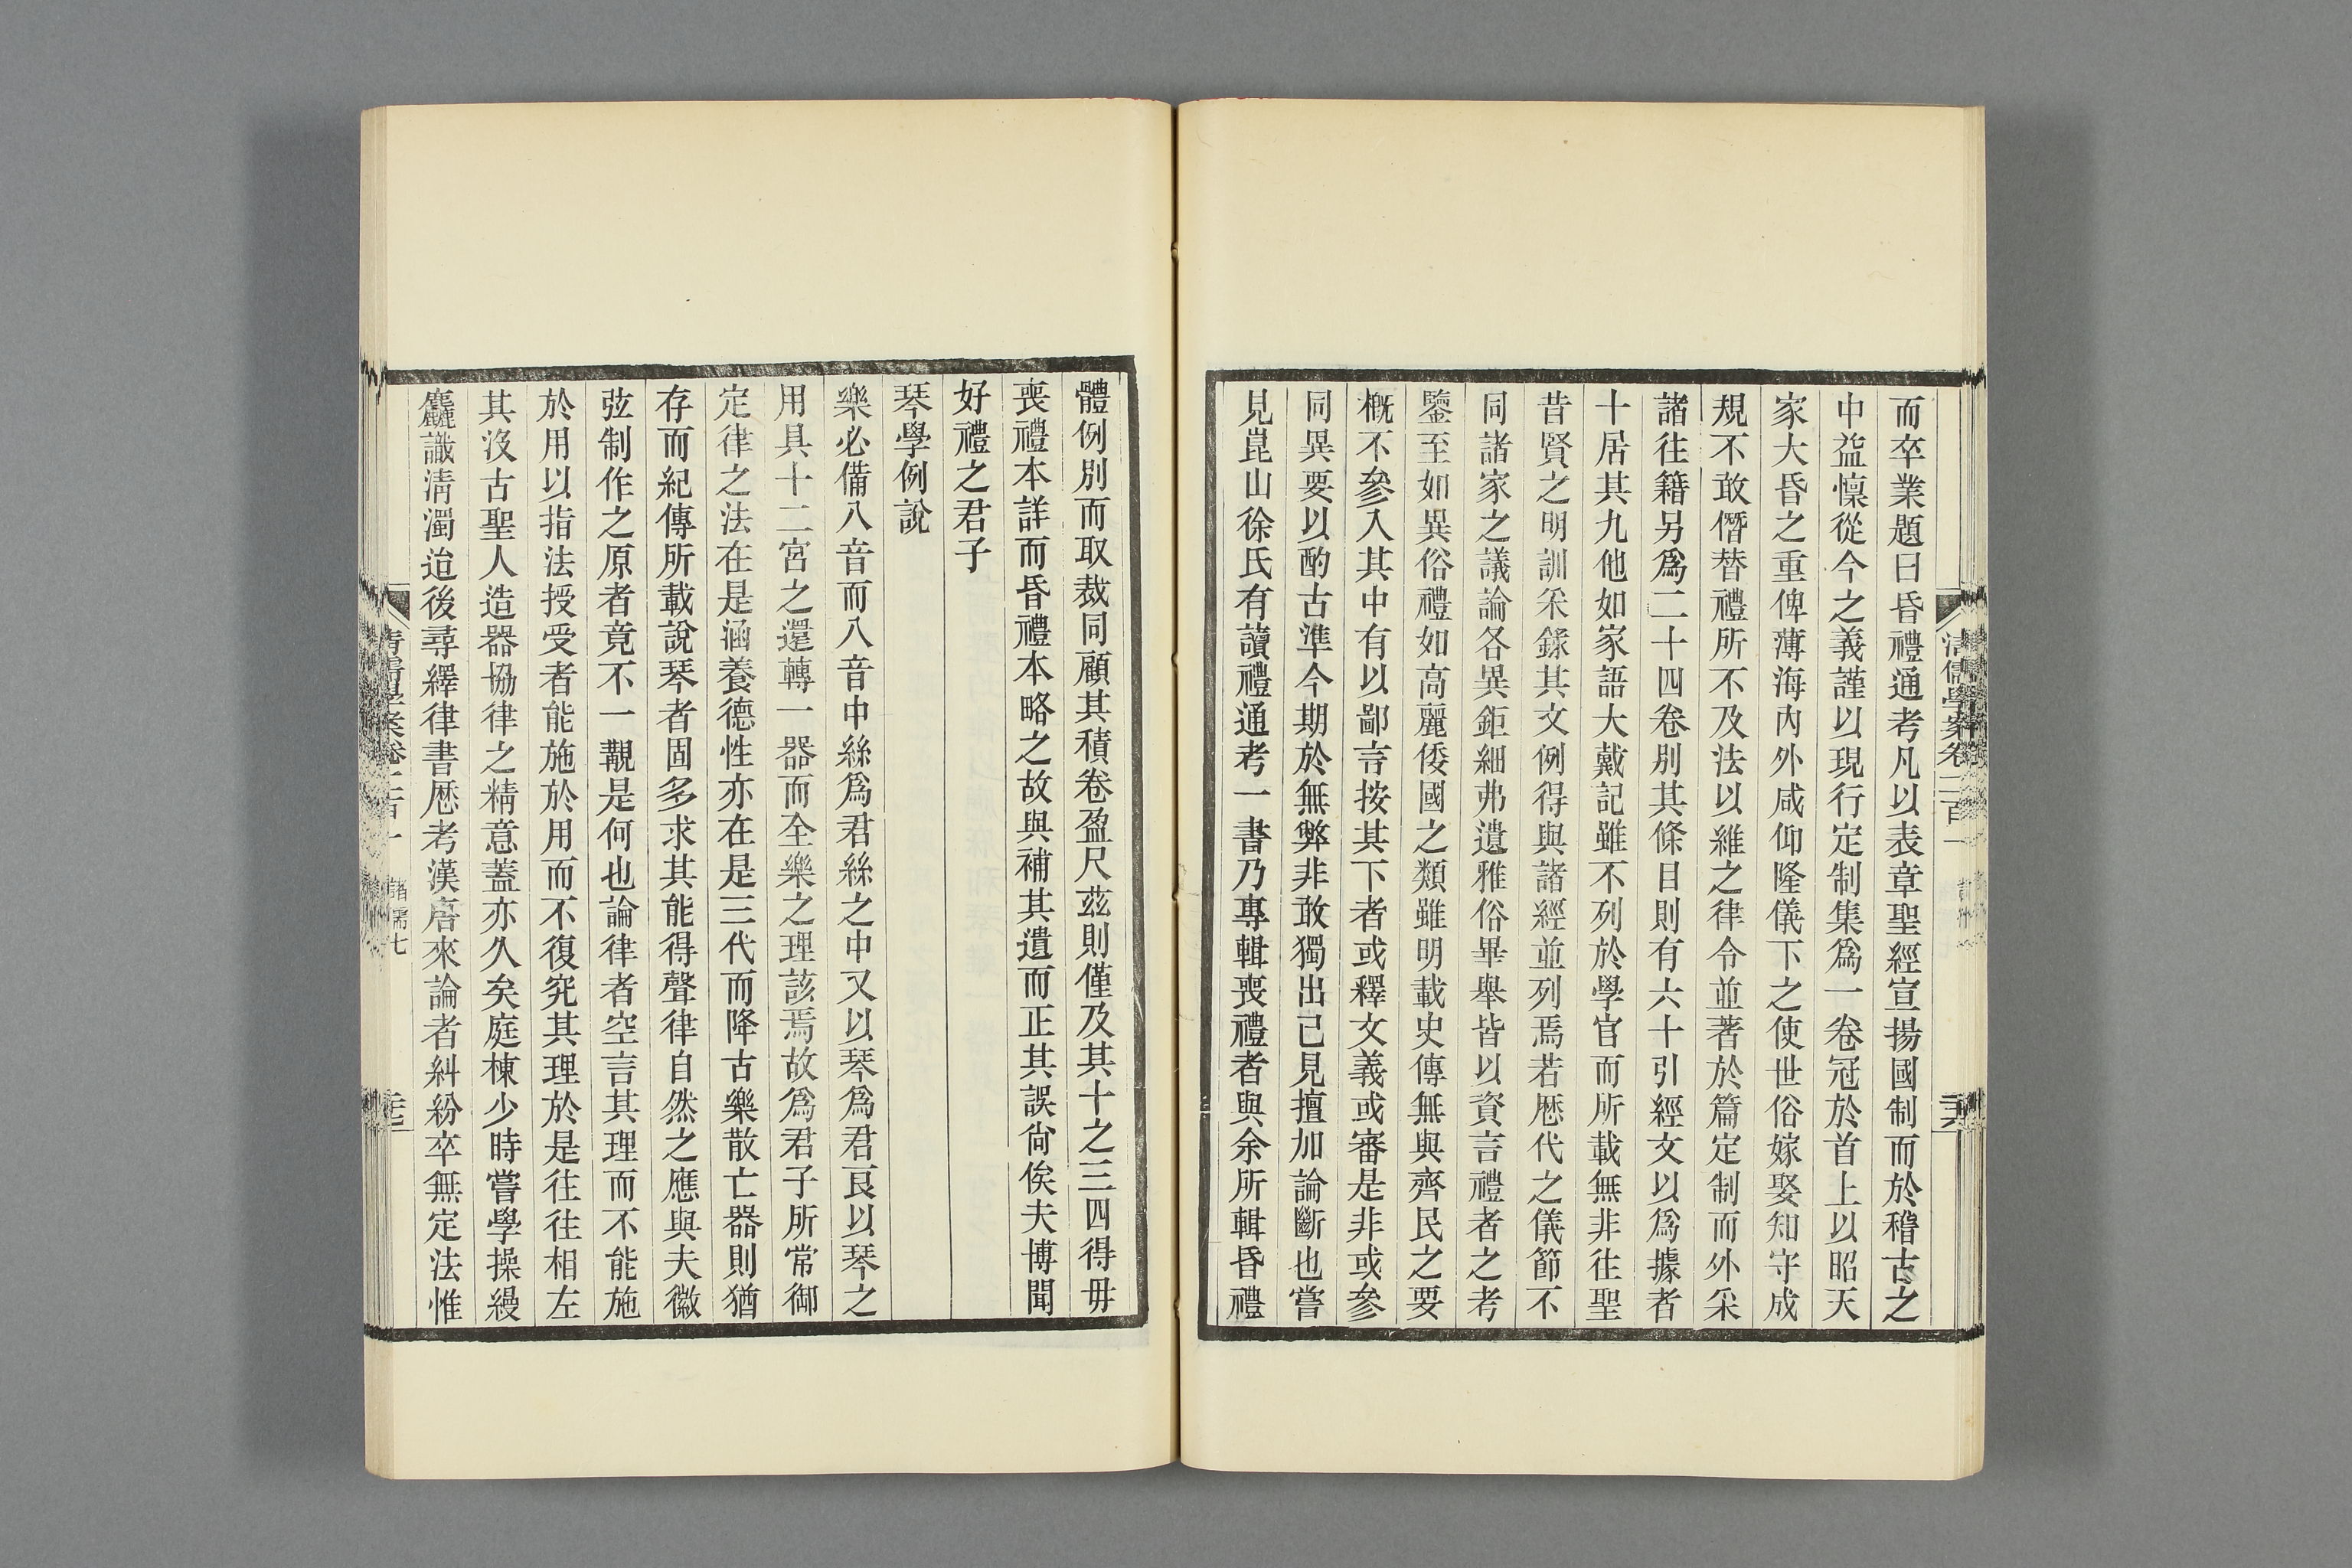 而卒業題曰昏禮通考凡以表章聖經宣揚國制而於稽古之
中益懍從今之義謹以現行定制集爲一卷冠於首上以昭天
家大昏之重俾薄海內外咸仰隆儀下之使世俗嫁娶知守成
規不敢僭替禮所不及法以維之律令並著於篇定制而外采
諸往籍另爲二十四卷別其條目則有六十引經文以爲據者
十居其九他如家語大戴記雖不列於學官而所載無非往聖
昔賢之明訓采錄其文例得與諸經並列焉若厯代之儀節不
同諸家之議論各異鉅細弗遺雅俗畢舉皆以資言禮者之考
鑒至如異俗禮如高麗倭國之類雖明載史傳無與齊民之要
概不參入其中有以鄙言按其下者或釋文義或審是非或參
同異要以酌古準今期於無弊非敢獨出己見擅加論斷也嘗
見崑山徐氏有讀禮通考一書乃專輯喪禮者與余所輯昏禮
體例別而取裁同顧其積卷盈尺茲則僅及其十之三四得毋
喪禮本詳而昏禮本略之故與補其遺而正其誤尙俟夫博聞
好禮之君子
琴學例說
樂必備八音而八音中絲爲君絲之中又以琴爲君良以琴之
用具十二宮之還轉一器而全樂之理該焉故爲君子所常御
定律之法在是涵養德性亦在是三代而降古樂散亡器則猶
存而紀傳所載說琴者固多求其能得聲律自然之應與夫徽
弦制作之原者竟不一觀是何也論律者空言其理而不能施
於用以指法授受者能施於用而不復究其理於是往往相左
其沒古聖人造器協律之精意蓋亦久矣庭棟少時嘗學操縵
麤識淸濁迨後尋繹律書厯考漢唐來論者糾紛卒無定法惟
清儒學案卷二百一 諸儒七